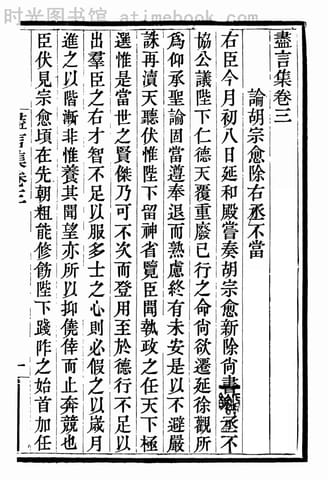 时光图书馆 - atimebook.com
盡言集卷三
論胡宗愈除右丞不當
右臣今月初八日延和殿嘗奏胡宗愈新除尙書右丞不
協公議陛下仁德天覆重廢已行之命尙欲遷延徐觀所
爲仰承聖諭固當遵奉退而熟慮終有未安是以不避嚴
誅再瀆天聽伏惟陛下留神省覽臣聞執政之任天下極
選惟是當世之賢傑乃可不次而登用至於德行不足以
出羣臣之右才智不足以服多士之心則必假之以歲月
進之以階漸非惟養其聞望亦所以抑僥倖而止奔競也
臣伏見宗愈頃在先朝粗能修飭陛下踐阼之始首加任
盡言集卷三
一